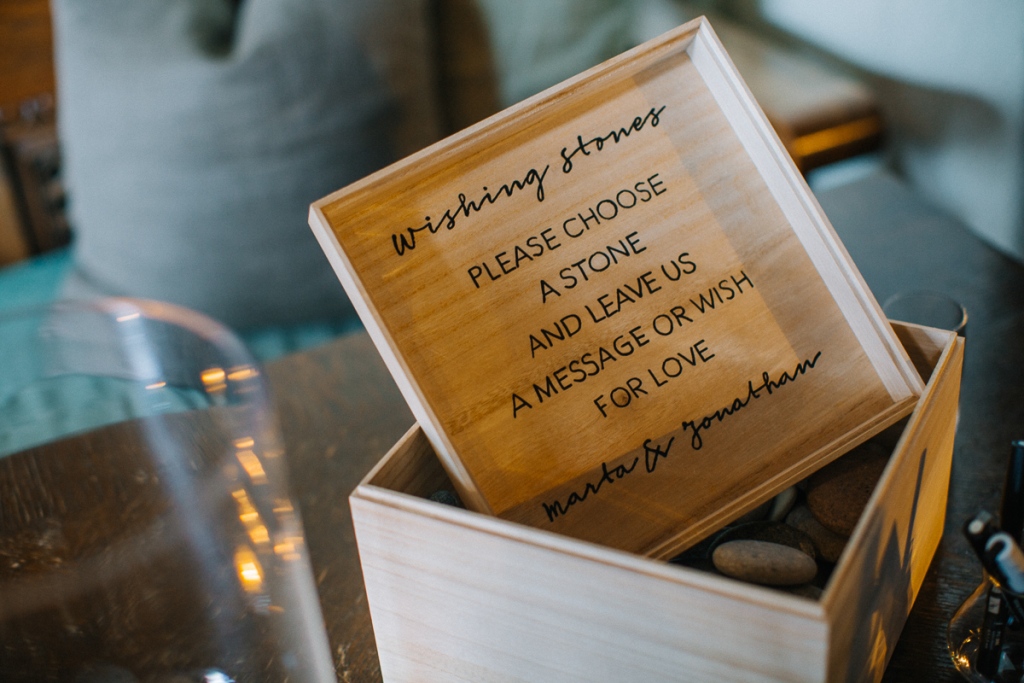 Wishing Stones
PLEASE CHOOSE
A STONE
AND LEAVE US
A MESSAGE OR WISH
FOR LOVE
Marta & Jonathan